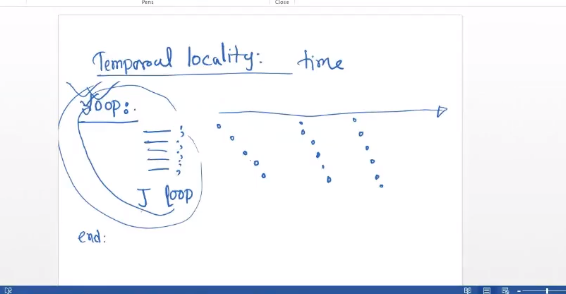 Pens Close
Temporal locality: time
loop:
;
;
;
;
J loop
end: